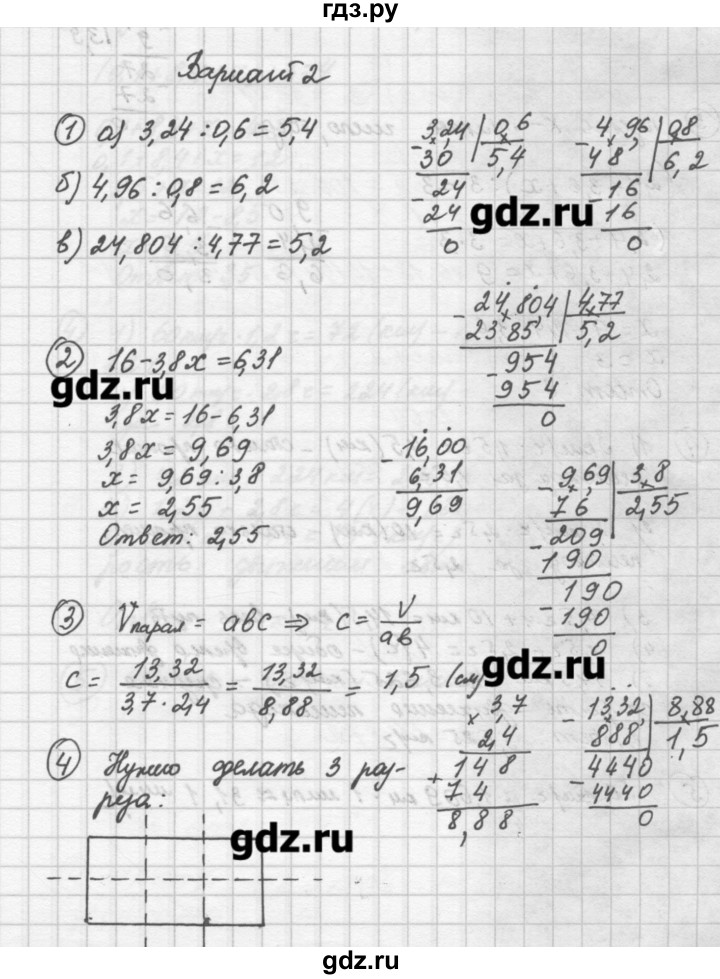 гдз.ру
Вариант 2
① а) 3,24 : 0,6 = 5,4
б) 4,96 : 0,8 = 6,2
в) 24,804 : 4,77 = 5,2
3,24 | 0,6
- 30 | 5,4
- 24
24
0
4,96 | 0,8
- 48 | 6,2
- 16
16
0
gdz.ru
24,804 | 4,77
- 2385 | 5,2
- 954
954
0
② 16 - 3,8x = 6,31
gdz.ru
3,8x = 16 - 6,31
3,8x = 9,69
x = 9,69 : 3,8
x = 2,55
Ответ: 2,55
- 16,00
6,31
9,69
- 9,69 | 3,8
76 | 2,55
- 209
190
- 190
190
0
③ Vпарал = abc ⇒ c = V/ab
c = 13,32/3,7·2,4 = 13,32/8,88 = 1,5 (см)
gdz.ru
× 3,7
2,4
+ 148
74
8,88
- 13,32 | 8,88
888 | 1,5
- 4440
4440
0
④ Нужно сделать 3 раз-
реза:
gdz.ru
gdz.ru